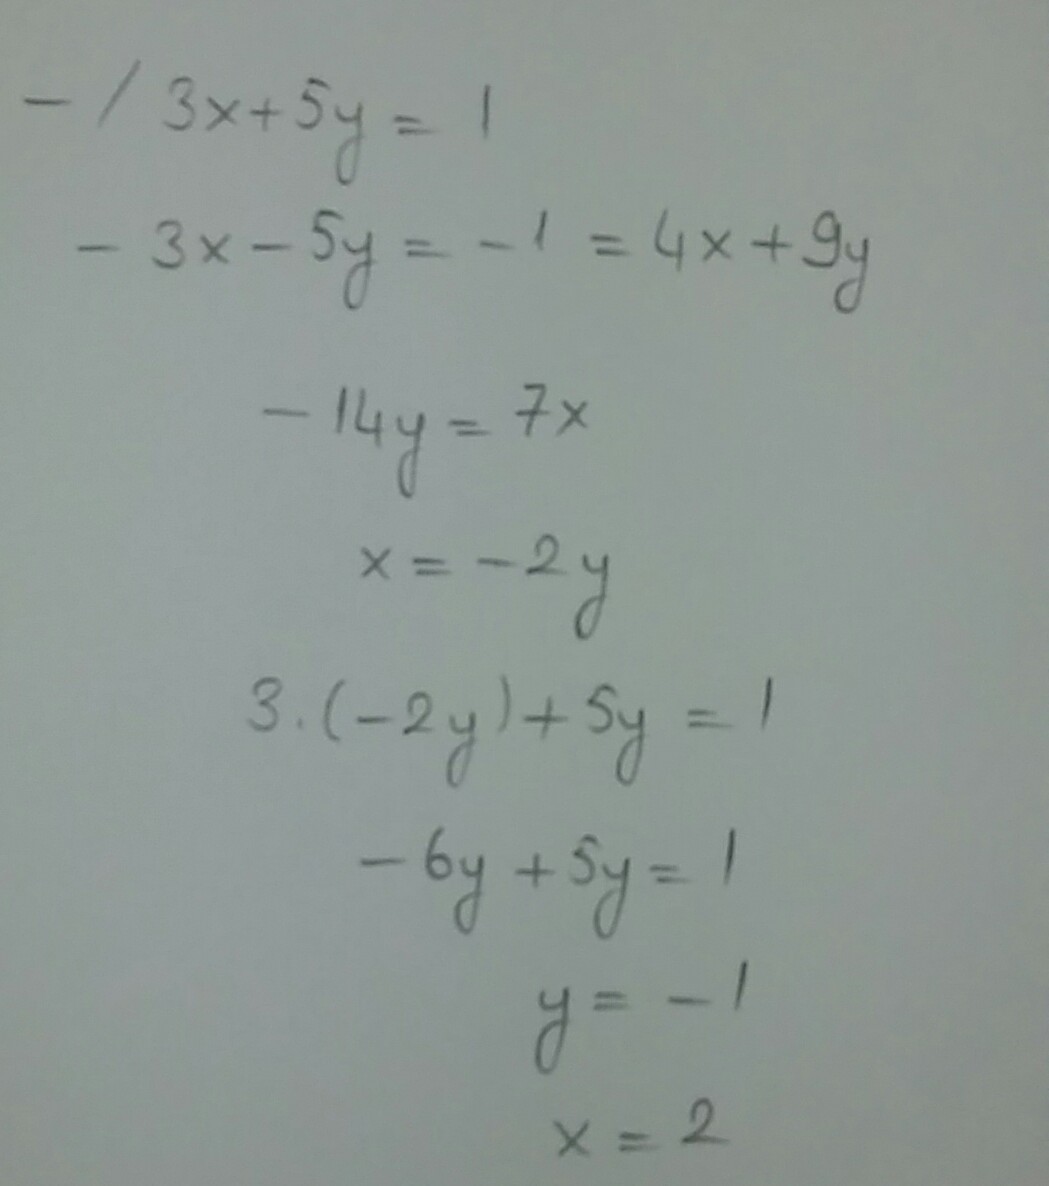 - / 3x+5y = 1
- 3x - 5y = -1 = 4x + 9y
- 14y = 7x
x = -2y
3.(-2y)+5y = 1
-6y + 5y = 1
y = -1
x = 2